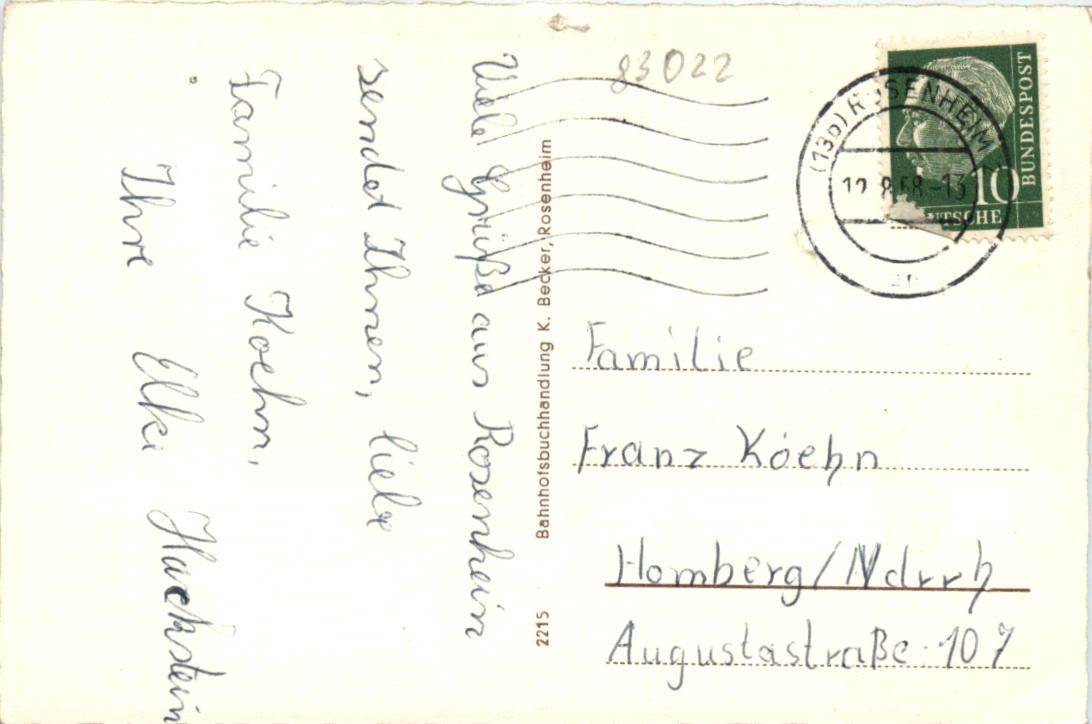 83022
Viele Grüße aus Rosenheim
sendet Ihnen, liebe
Familie Koehn,
Ihre Elke Hackstein
2215 Bahnhofsbuchhandlung K. Becker, Rosenheim
(13b) ROSENHEIM
12.8.58-13
BUNDESPOST
10
Familie
Franz Koehn
Homberg/Ndrrh
Augustastraße 107